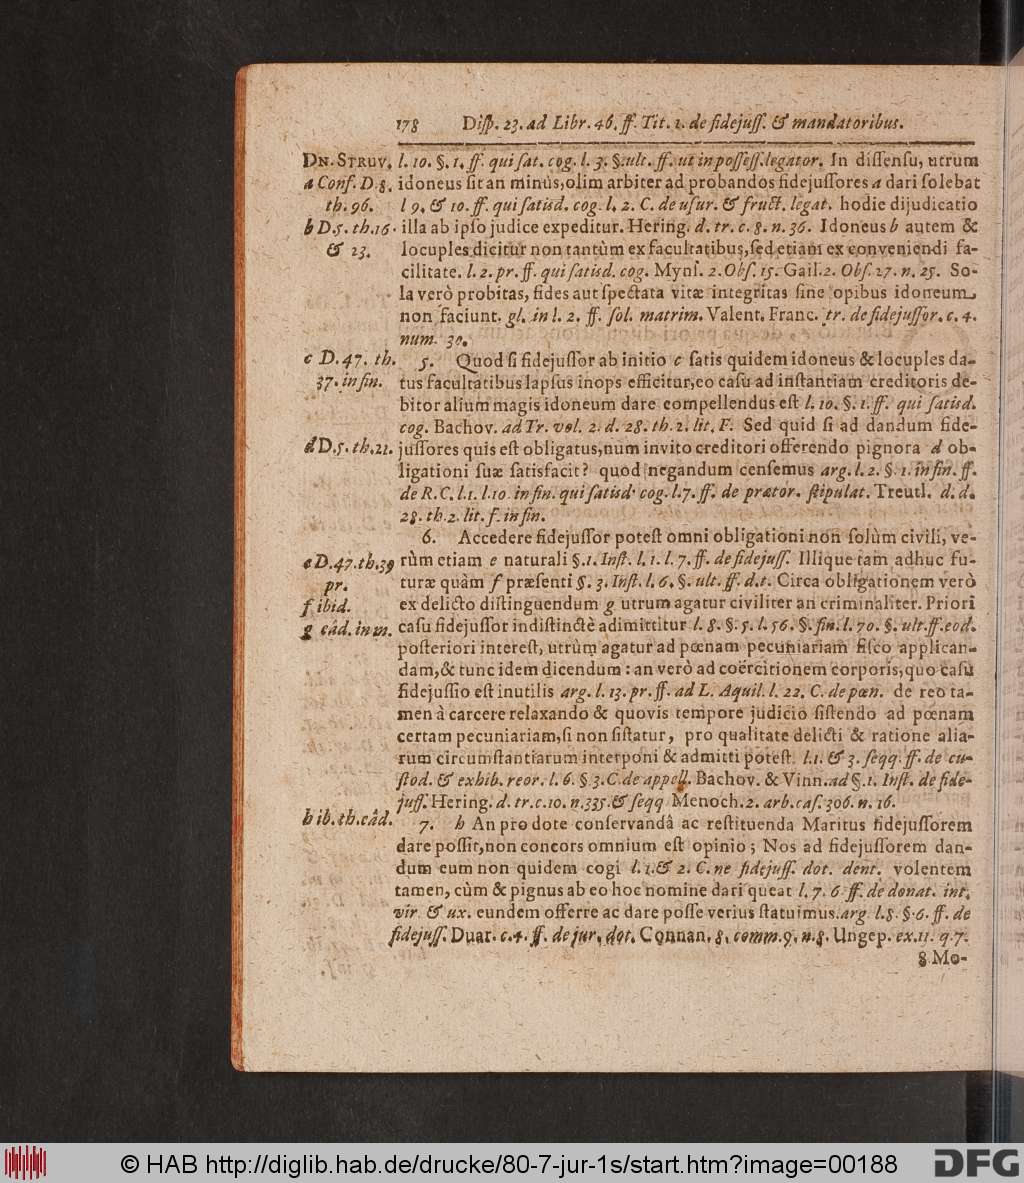 178 Disp. 23. ad Libr. 46. ff. Tit. 1. de fidejuss. & mandatoribus.
DN. STRUV. l. 10. §. 1. ff. qui sat. cog. l. 3. §. ult. ff. ut in possess. legator. In dissensu, utrum
a Conf. D. 8. idoneus sit an minùs, olim arbiter ad probandos fidejussores a dari solebat
th. 96. l 9. & 10. ff. qui satisd. cog. l. 2. C. de usur. & fruct. legat. hodie dijudicatio
b D. 5. th. 16. illa ab ipso judice expeditur. Hering. d. tr. c. 8. n. 36. Idoneus b autem &
& 23. locuples dicitur non tantùm ex facultatibus, sed etiam ex conveniendi fa-
cilitate. l. 2. pr. ff. qui satisd. cog. Myns. 2. Obs. 15. Gail. 2. Obs. 27. n. 25. So-
la verò probitas, fides aut spectata vitæ integritas sine opibus idoneum
non faciunt. gl. in l. 2. ff. sol. matrim. Valent. Franc. tr. de fidejussor. c. 4.
num. 30.
c D. 47. th. 5. Quod si fidejussor ab initio c satis quidem idoneus & locuples da-
37. in fin. tus facultatibus lapsus inops efficitur, eo casu ad instantiam creditoris de-
bitor alium magis idoneum dare compellendus est l. 10. §. 1. ff. qui satisd.
cog. Bachov. ad Tr. vol. 2. d. 28. th. 2. lit. F. Sed quid si ad dandum fide-
d D. 5. th. 21. jussores quis est obligatus, num invito creditori offerendo pignora d ob-
ligationi suæ satisfacit? quod negandum censemus arg. l. 2. §. 1. in fin. ff.
de R. C. l. 1. l. 10. in fin. qui satisd. cog. l. 7. ff. de prætor. stipulat. Treutl. d. d.
28. th. 2. lit. f. in fin.
6. Accedere fidejussor potest omni obligationi non solùm civili, ve-
e D. 47. th. 39 rùm etiam e naturali §. 1. Inst. l. 1. l. 7. ff. de fidejuss. Illique tam adhuc fu-
pr. turæ quàm f præsenti §. 3. Inst. l. 6. §. ult. ff. d. t. Circa obligationem verò
f ibid. ex delicto distinguendum g utrum agatur civiliter an criminaliter. Priori
g eâd. in m. casu fidejussor indistinctè adimittitur l. 8. §. 5. l. 56. §. fin. l. 70. §. ult. ff. eod.
posteriori interest, utrùm agatur ad pœnam pecuniariam fisco applican-
dam, & tunc idem dicendum: an verò ad coërcitionem corporis, quo casu
fidejussio est inutilis arg. l. 13. pr. ff. ad L. Aquil. l. 22. C. de pœn. de reo ta-
men à carcere relaxando & quovis tempore judicio sistendo ad pœnam
certam pecuniariam, si non sistatur, pro qualitate delicti & ratione alia-
rum circumstantiarum interponi & admitti potest. l. 1. & 3. seqq. ff. de cu-
stod. & exhib. reor. l. 6. §. 3. C. de appell. Bachov. & Vinn. ad §. 1. Inst. de fide-
juss. Hering. d. tr. c. 10. n. 335. & seqq Menoch. 2. arb. cas. 306. n. 16.
h ib. th. eâd. 7. h An pro dote conservandâ ac restituenda Maritus fidejussorem
dare possit, non concors omnium est opinio; Nos ad fidejussorem dan-
dum eum non quidem cogi l. 1. & 2. C. ne fidejuss. dot. dent. volentem
tamen, cùm & pignus ab eo hoc nomine dari queat l. 7. 6 ff. de donat. int.
vir. & ux. eundem offerre ac dare posse verius statuimus. arg l. 8. §. 6. ff. de
fidejuss. Duar. c. 4. ff. de jur. dot. Connan. 8. comm. 9. n. 8. Ungep. ex. 11. q. 7.
8 Mo-
© HAB http://diglib.hab.de/drucke/80-7-jur-1s/start.htm?image=00188
DFG